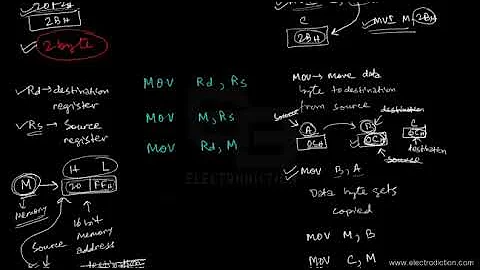 20FFH
2BH
2byte
Rd → destination
register
Rs → Source
register
M
Memory
H L
20 FFH
16 bit
memory
address
Source
destination
MOV Rd, Rs
MOV M, Rs
MOV Rd, M
ELECTRODICTION
C
2BH
MVI M, 2BH
MOV → move data
byte to destination
from source
source
destination
A B C
0CH 0CH 0CH
destination
source
MOV B, A
Data byte gets
copied
MOV M, B
MOV C, M
www.electrodiction.com